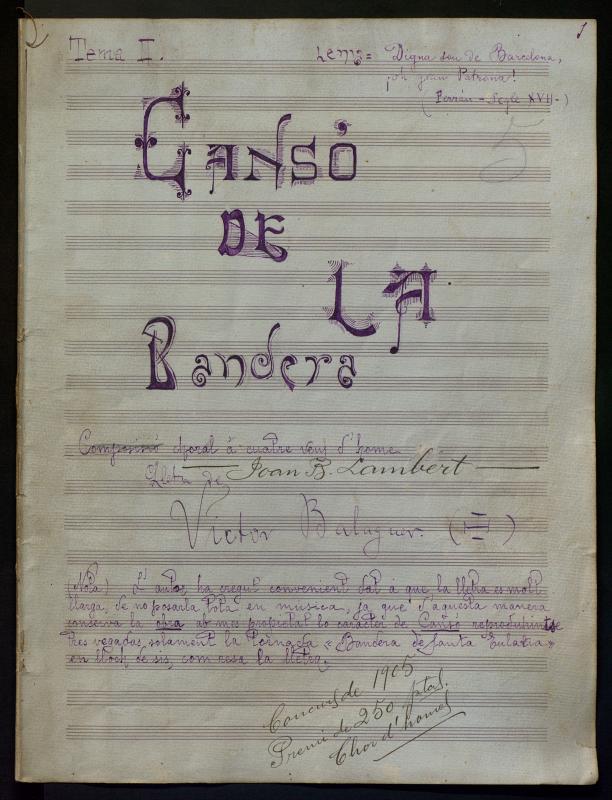 1
Tema II.
Lema = Digna sou de Barcelona,
¡oh gran Patrona!
(Ferrán - Segle XVII-)
5
CANSÓ
DE
LA
Bandera
Composisió choral á cuatre veus d'home
Joan B. Lambert
Lletra de
Victor Balaguer. (II)
(Nota) L'autor ha cregut convenient dat á que la lletra es molt
llarga, de no posarla tota en música, ja que d'aquesta manera
conserva la obra ab mes propietat lo caracter de Cansó reproduhintse
tres vegadas solament la Tornada «Bandera de Santa Eularia»
en lloch de sis, com resa la lletra.
Concurs de 1905
Premi de 250 ptas.
Chor d'homes